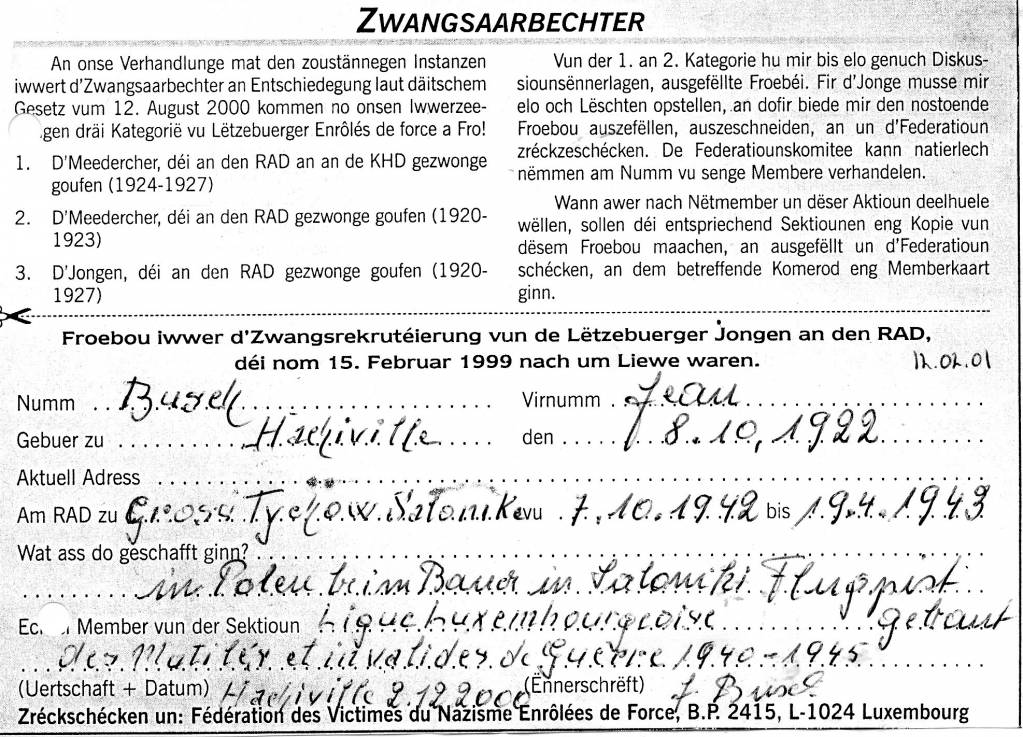 ZWANGSAARBECHTER
An onse Verhandlunge mat den zoustännegen Instanzen
iwwert d'Zwangsaarbechter an Entschiedegung laut däitschem
Gesetz vum 12. August 2000 kommen no onsen Iwwerzee-
gen dräi Kategorië vu Lëtzebuerger Enrôlés de force a Fro!
1. D'Meedercher, déi an den RAD an an de KHD gezwonge
goufen (1924-1927)
2. D'Meedercher, déi an den RAD gezwonge goufen (1920-
1923)
3. D'Jongen, déi an den RAD gezwonge goufen (1920-
1927)
Vun der 1. an 2. Kategorie hu mir bis elo genuch Diskus-
siounsënnerlagen, ausgefëllte Froebéi. Fir d'Jonge musse mir
elo och Lëschten opstellen, an dofir biede mir den nostoende
Froebou auszefëllen, auszeschneiden, an un d'Federatioun
zréckzeschécken. De Federatiounskomitee kann natierlech
nëmmen am Numm vu senge Membere verhandelen.
Wann awer nach Nëtmember un dëser Aktioun deelhuele
wëllen, sollen déi entspriechend Sektiounen eng Kopie vun
dësem Froebou maachen, an ausgefëllt un d'Federatioun
schécken, an dem betreffende Komerod eng Memberkaart
ginn.
Froebou iwwer d'Zwangsrekrutéierung vun de Lëtzebuerger Jongen an den RAD,
déi nom 15. Februar 1999 nach um Liewe waren. 12.02.01
Numm Busch Virnumm Jean
Gebuer zu Hachiville den 8.10.1922
Aktuell Adress
Am RAD zu Gross Tychow. Saloniki vu 7.10.1942 bis 19.4.1943
Wat ass do geschafft ginn?
in Polen beim Bauer in Saloniki Flugpist
Member vun der Sektioun Ligue Luxembourgeoise gebaut
des Mutilés et invalides de Guerre 1940-1945
(Uertschaft + Datum) Hachiville 2.12.2000 (Ënnerschrëft) J. Busch
Zréckschécken un: Fédération des Victimes du Nazisme Enrôlées de Force, B.P. 2415, L-1024 Luxembourg